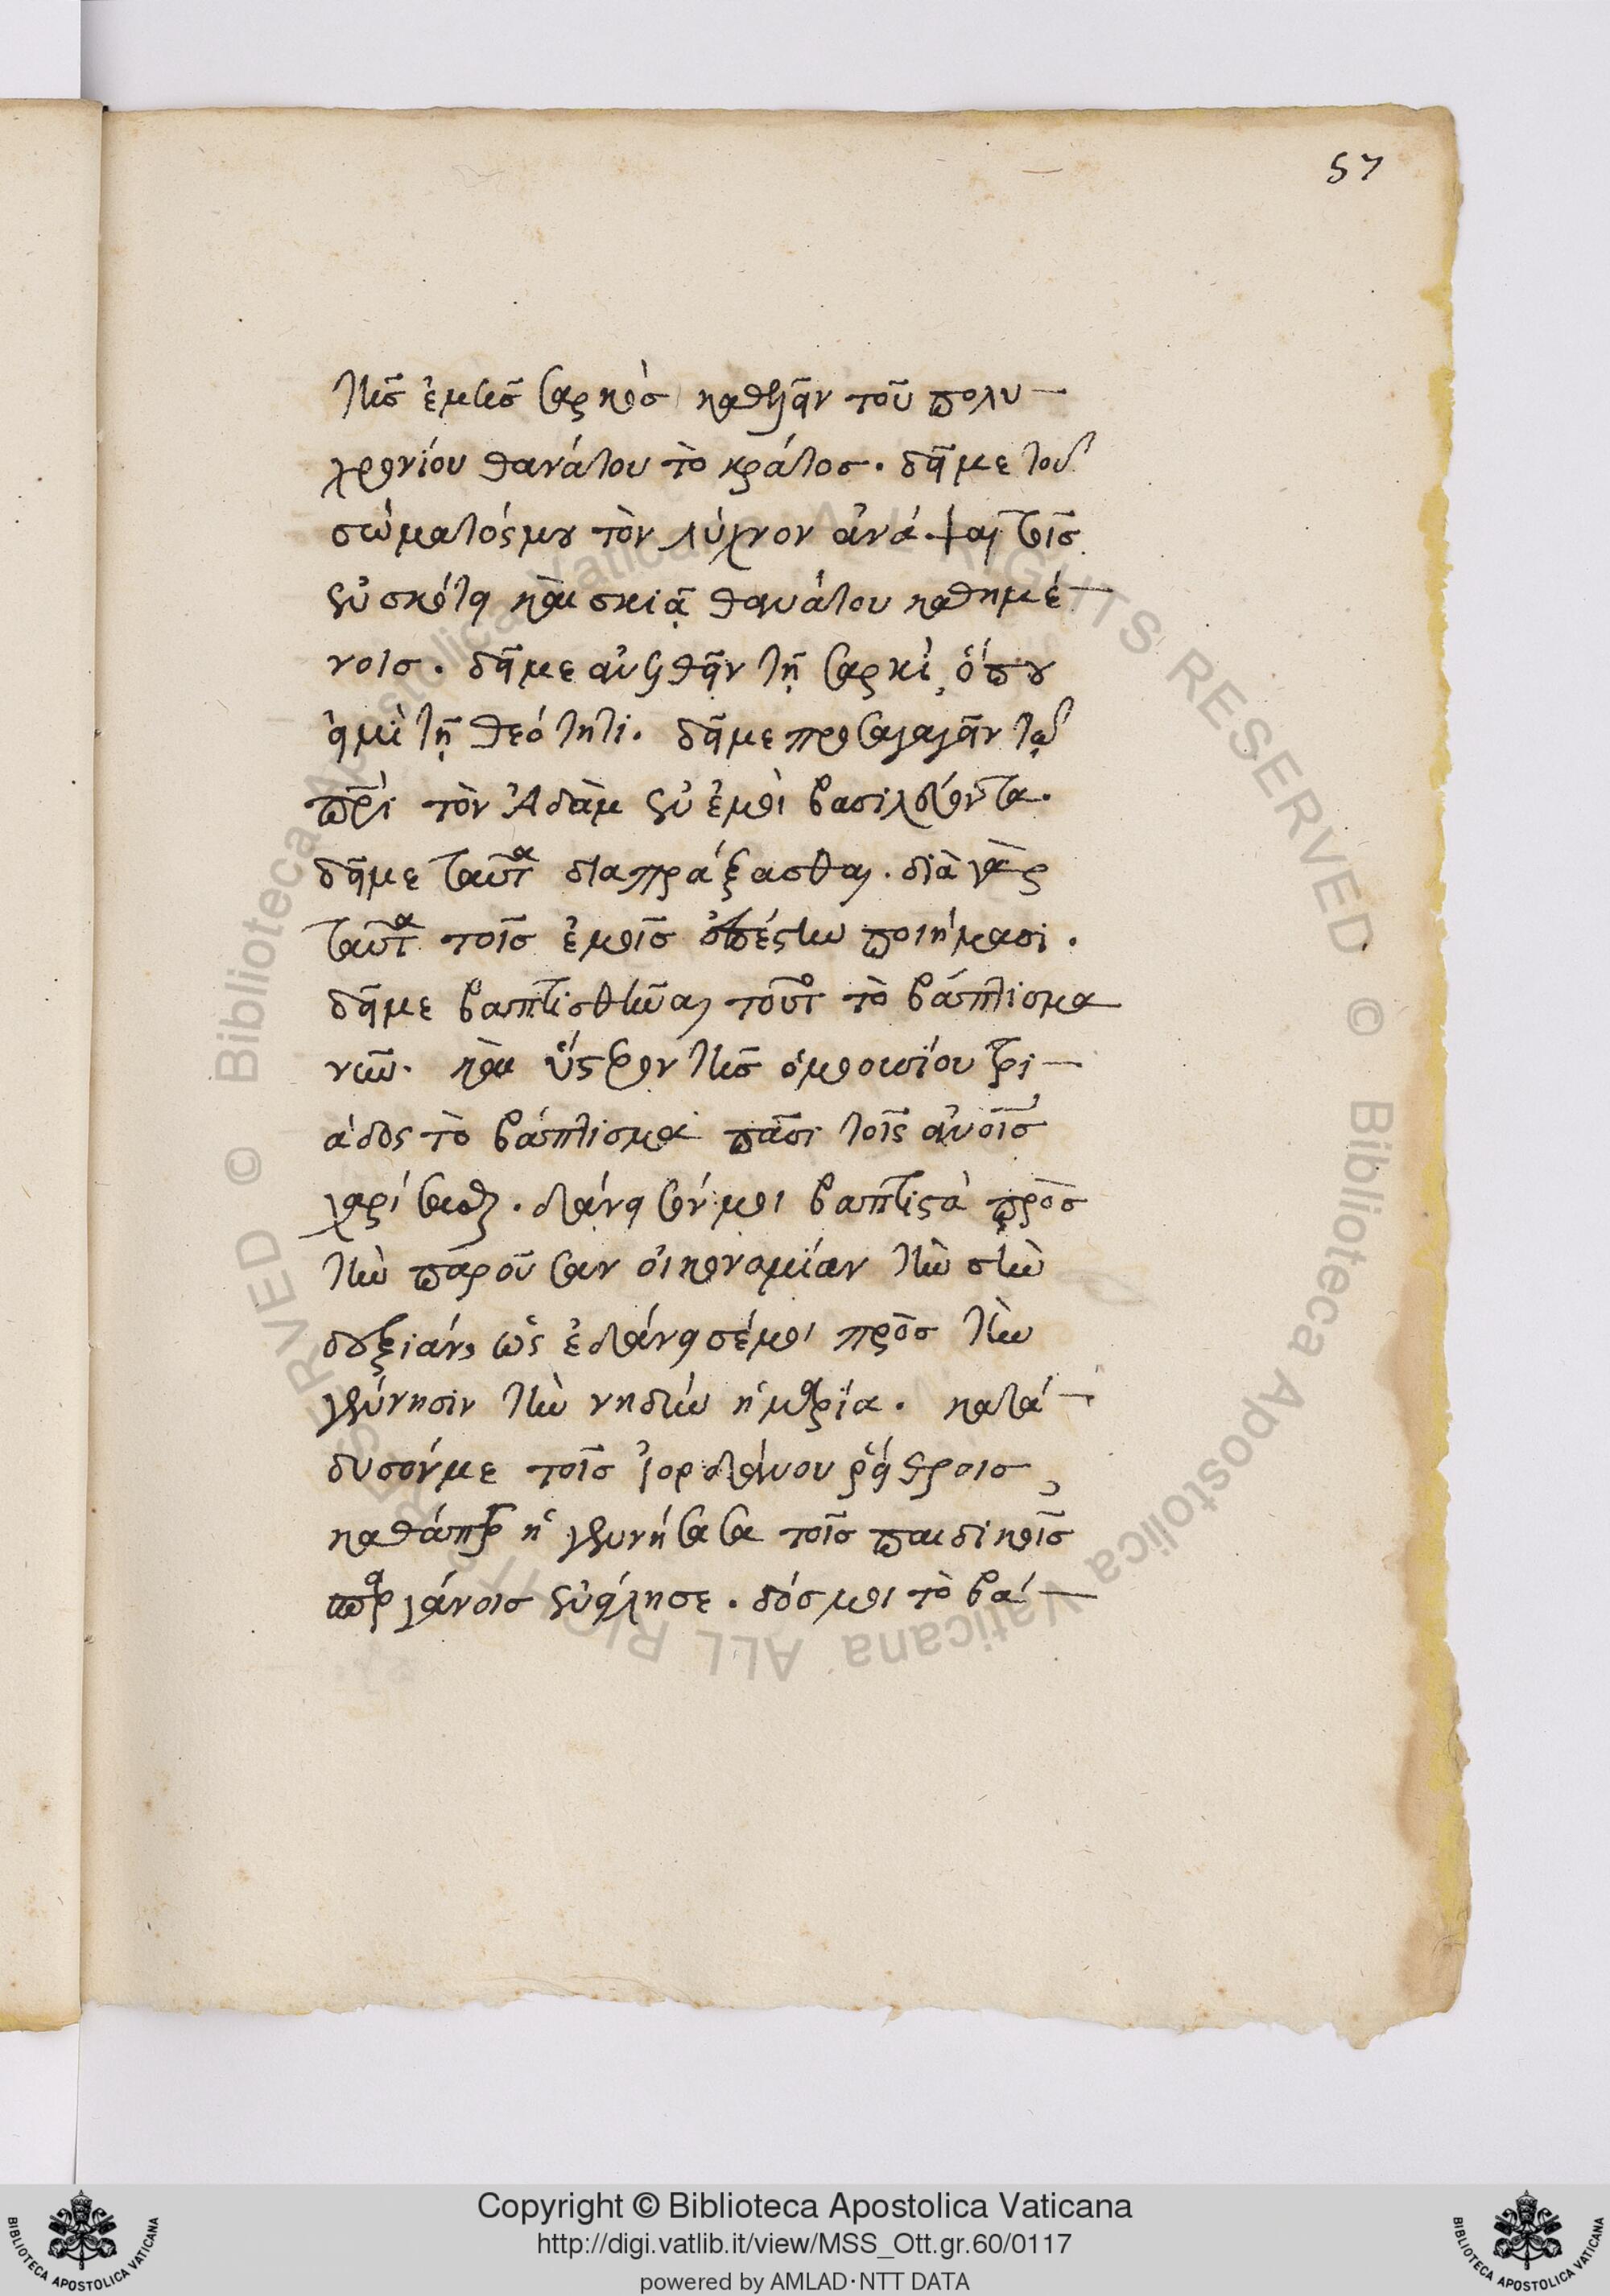 57
τῆς ἐμῆς σαρκὸς καθεῖλν τοῦ πολυ-
χρονίου θανάτου τὸ κράτος. δεῖ με τοῦ
σώματός μου τὸν λύχνον ἀνάψαι τοῖς
ἐν σκότει καὶ σκιᾷ θανάτου καθημέ-
νοις. δεῖ με ἀνελθεῖν τῇ σαρκί, ὅπου
εἰμὶ τῇ θεότητι. δεῖ με προσαγαγεῖν τῷ
πρὶ τὸν Ἀδὰμ ἐν ἐμοὶ βασιλεύοντα.
δεῖ με ταῦτα διαπράξασθαι. διὰ γὰρ
ταῦτα τοῖς ἐμοῖς ἐπέστην ποιήμασι.
δεῖ με βαπτισθῆναι τοῦτο τὸ βάπτισμα
νῦν. καὶ ὕστερον τῆς ὁμοουσίου τρι-
άδος τὸ βάπτισμα πᾶσι τοῖς ἀνοις
χαρίσασθαι. δάνεισόν μοι βαπτιστὰ πρὸς
τὴν παροῦσαν οἰκονομίαν τὴν σὴν
δεξιάν, ὡς ἐδάνεισέ μοι πρὸς τὴν
γέννησιν τὴν νηδὺν ἡ μαρία. κατά-
δυσόν με τοῖς ἰορδάνου ῥείθροις,
καθάπερ ἡ γεννήσασα τοῖς παιδικοῖς
σπαργάνοις ἐνείλησε. δός μοι τὸ βά-
Copyright © Biblioteca Apostolica Vaticana
http://digi.vatlib.it/view/MSS_Ott.gr.60/0117
powered by AMLAD·NTT DATA